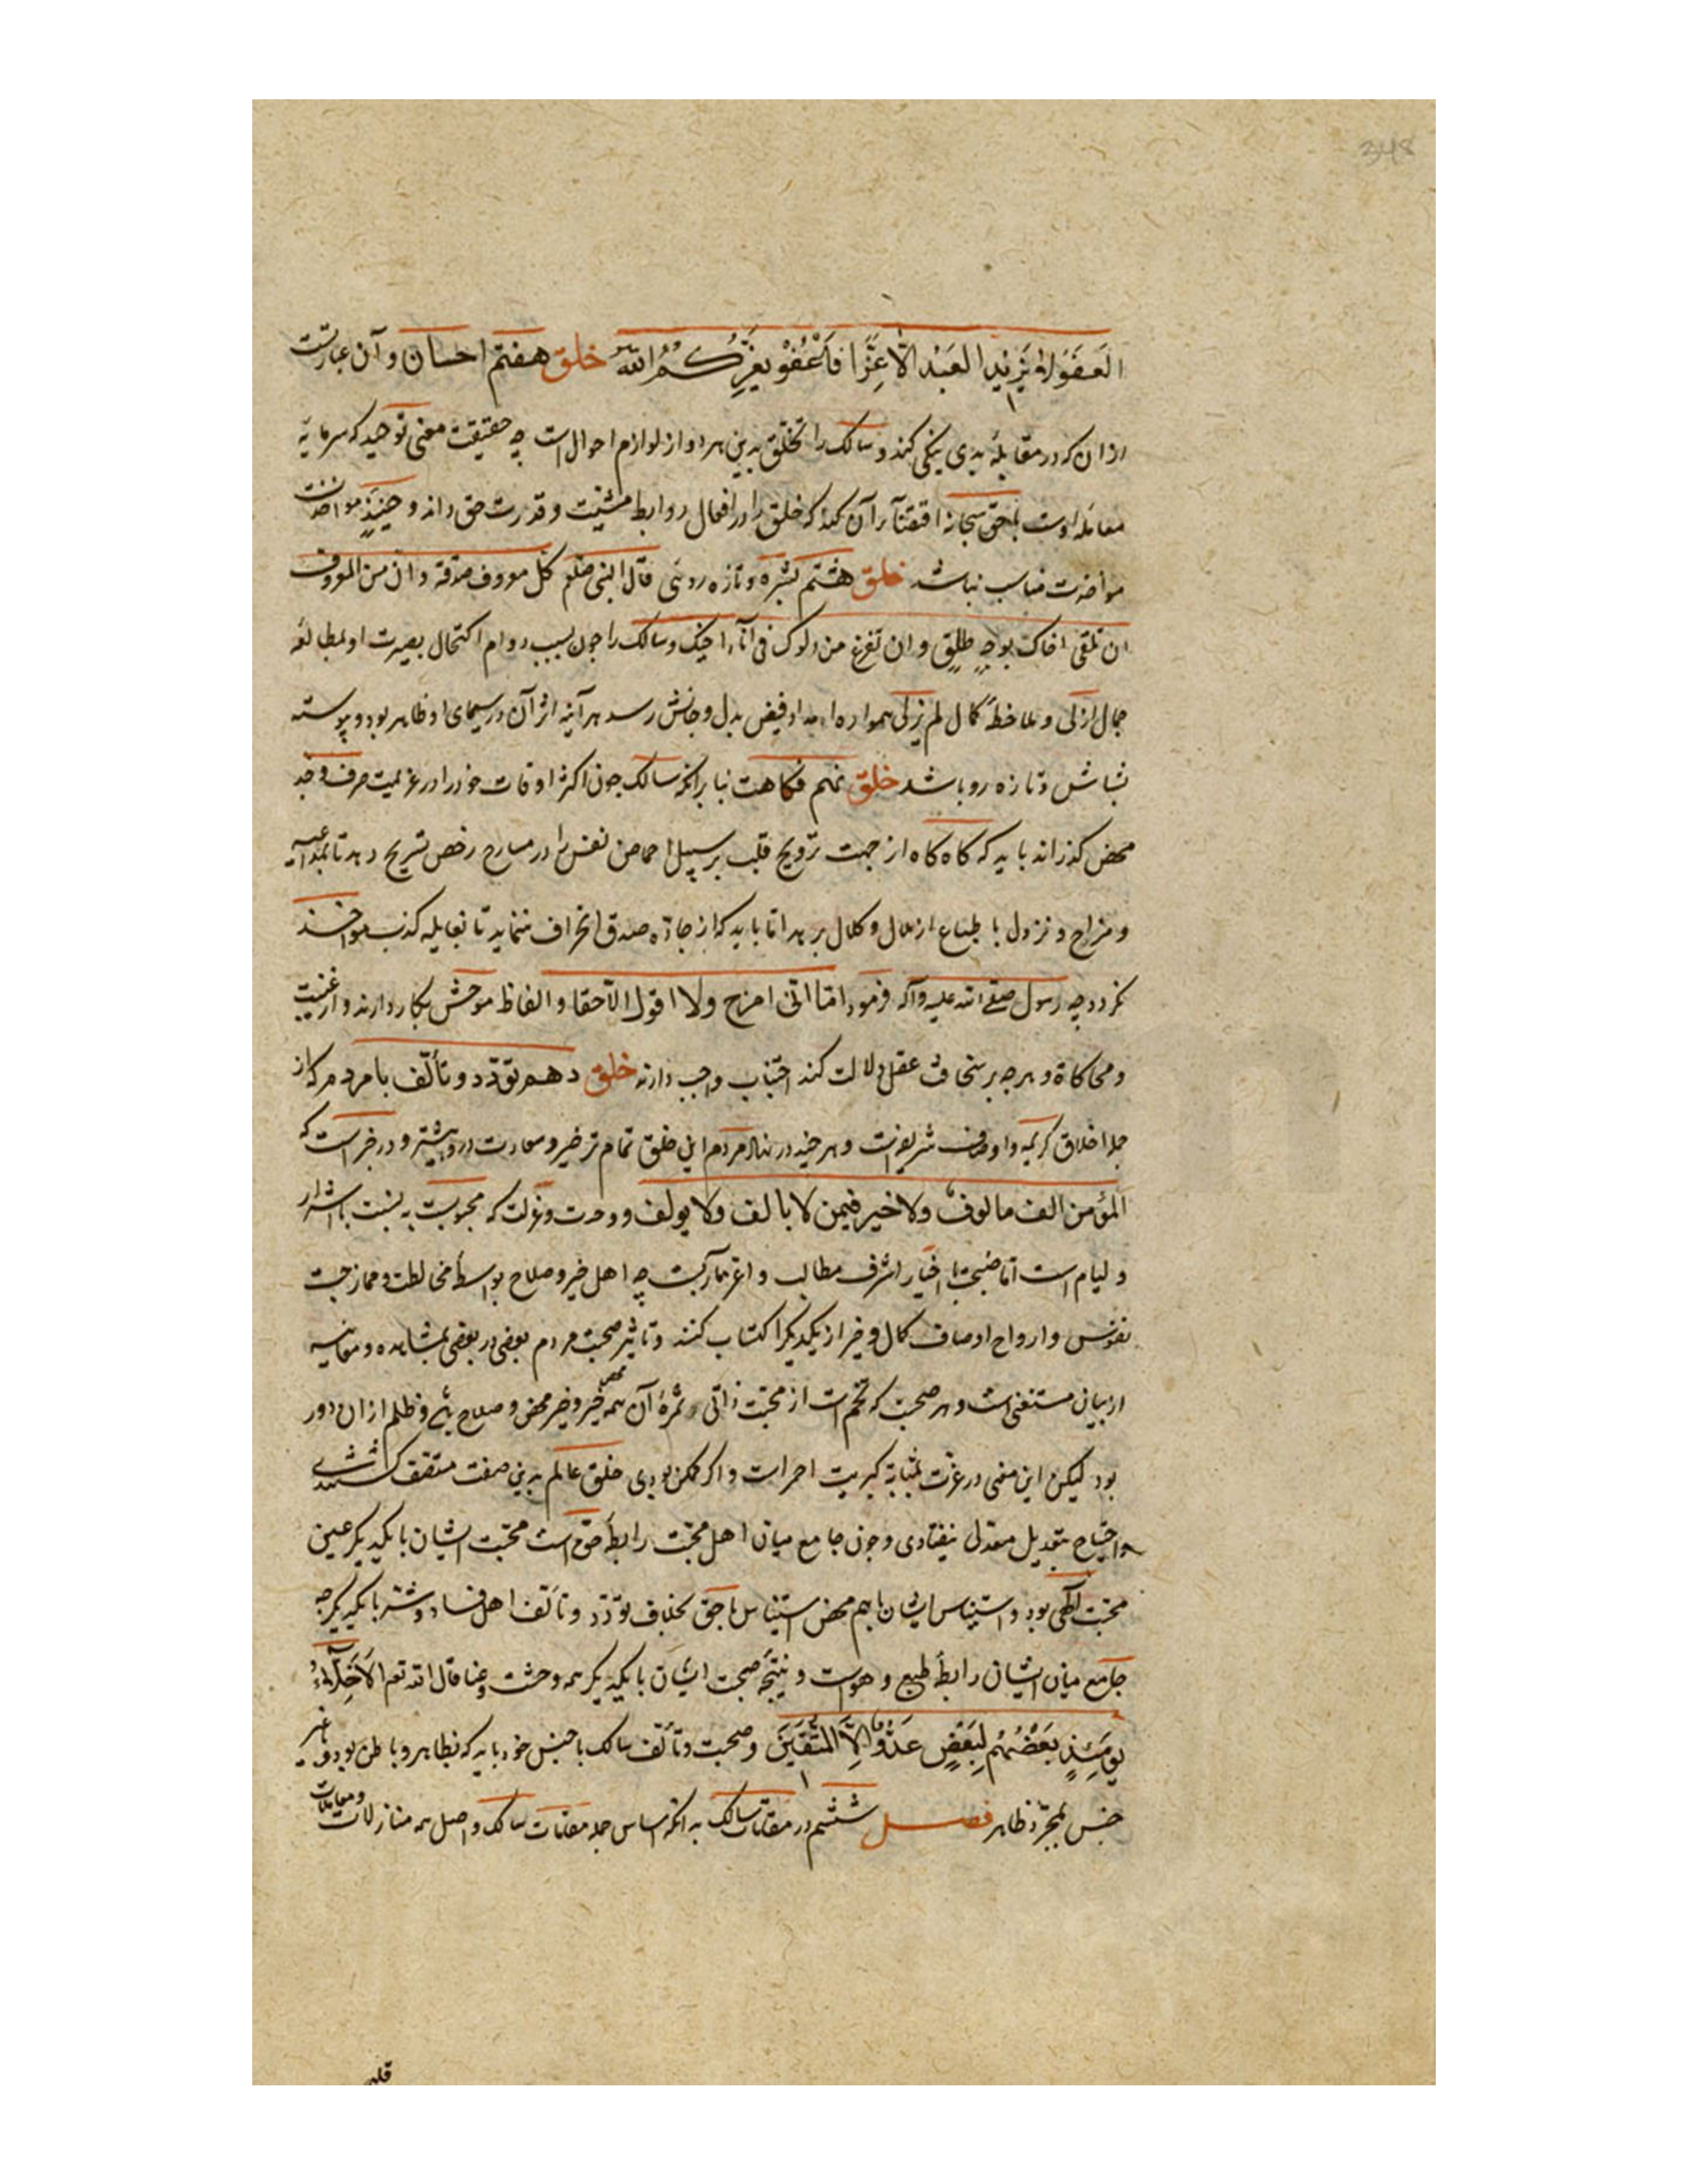 العفو لا یزید العبد الا عزا فاعفو یعزکم الله خلق هفتم احسان و آن عبارتست
ازان که در مقابلهٔ بدی نیکی کند و سالک را تخلق بدین هر دو از لوازم احوال است چه حقیقت معنی توحید که سرمایهٔ
معامله اوست بحق سبحانه اقتضاء آن کند که خلق را در افعال روابط مشیت و قدرت حق داند و حینئذ
مواخذت مناسب نباشد خلق هشتم بشره و تازه روئی قال النبی صلعم کل معروف صدقة و ان من المعروف
ان تلقی اخاک بوجه طلق و ان تفرغ من دلوک فی اناء اخیک و سالک را چون بسبب دوام اکتحال بصیرت او بمطالعهٔ
جمال ازلی و ملاحظهٔ کمال لم یزلی همواره امداد فیض بدل و جانش رسد هر آینه اثر آن در سیمای او ظاهر بود و پیوسته
بشاش و تازه رو باشد خلق نهم فکاهت بنا برانکه سالک چون اکثر اوقات خود را در عزیمت صرف و جد
محض کذراند باید که کاه کاه از جهت ترویح قلب بر سبیل احماض نفس را در مسارح رخص تسریح دهد تا
و مزاح و نزول با طباع از ملال و کلال برهد اما باید که از جادهٔ صدق انحراف ننماید تا بغایله کذب مواخذ
نکردد چه رسول صلی الله علیه و آله فرمود اما انی امزح ولا اقول الا حقا و الفاظ موحش بکار ندارند و از غیبت
و محاکاة و هر چه بر سخافت عقل دلالت کند اجتناب واجب دارند خلق دهم تودد و تألف با مردم که از
جمله اخلاق کریمه و اوصاف شریفست و هر چند در نهاد مردم این خلق تمام تر خیر و سعادت درو بیشتر و در خبر است که
المؤمن الف مالوف ولا خیر فیمن لا یالف ولا یولف و وحدت و عزلت که محبوبست به نسبت با اشرار
و لیام است اما صحبت اخیار اشرف مطالب و اعز مآربست چه اهل خیر و صلاح بواسطهٔ مخالطت و ممازجت
نفوس و ارواح اوصاف کمال و خیر از یکدیکر اکتساب کنند و تاثیر صحبت مردم بعضی در بعضی بمشاهده و معاینه
از بیان مستغنی است و هر صحبت که تخم است از محبت ذاتی و ثمرهٔ آن همه خیر و خیر محض و صلاح و ظلم ازان دور
بود لیکن این معنی در عزت بمثابهٔ کبریت احمر است و اکر ممکن بودی خلق عالم بدین صفت متصف کشتندی
و احتیاج بتعدیل معدل نیفتادی و چون جامع میان اهل محبت رابطهٔ حق است محبت ایشان با یکدیکر عین
محبت الهی بود و استیناس ایشان باهم محض استیناس با حق بخلاف تودد و تألف اهل فساد و شر با یکدیکر چه
جامع میان ایشان رابطهٔ طبع و هواست و نتیجهٔ صحبت ایشان با یکدیکر همه وحشت و عنا قال الله تعم الاخلاء
یومئذ بعضهم لبعض عدو الا المتقین و صحبت و تألف سالک با جنس خود باید که بظاهر و باطن بود و غیر
جنس بمجرد ظاهر فصل ششم در مقامات سالک بدانکه اساس جمله مقامات سالک و اصل همه منازلات و معاملات